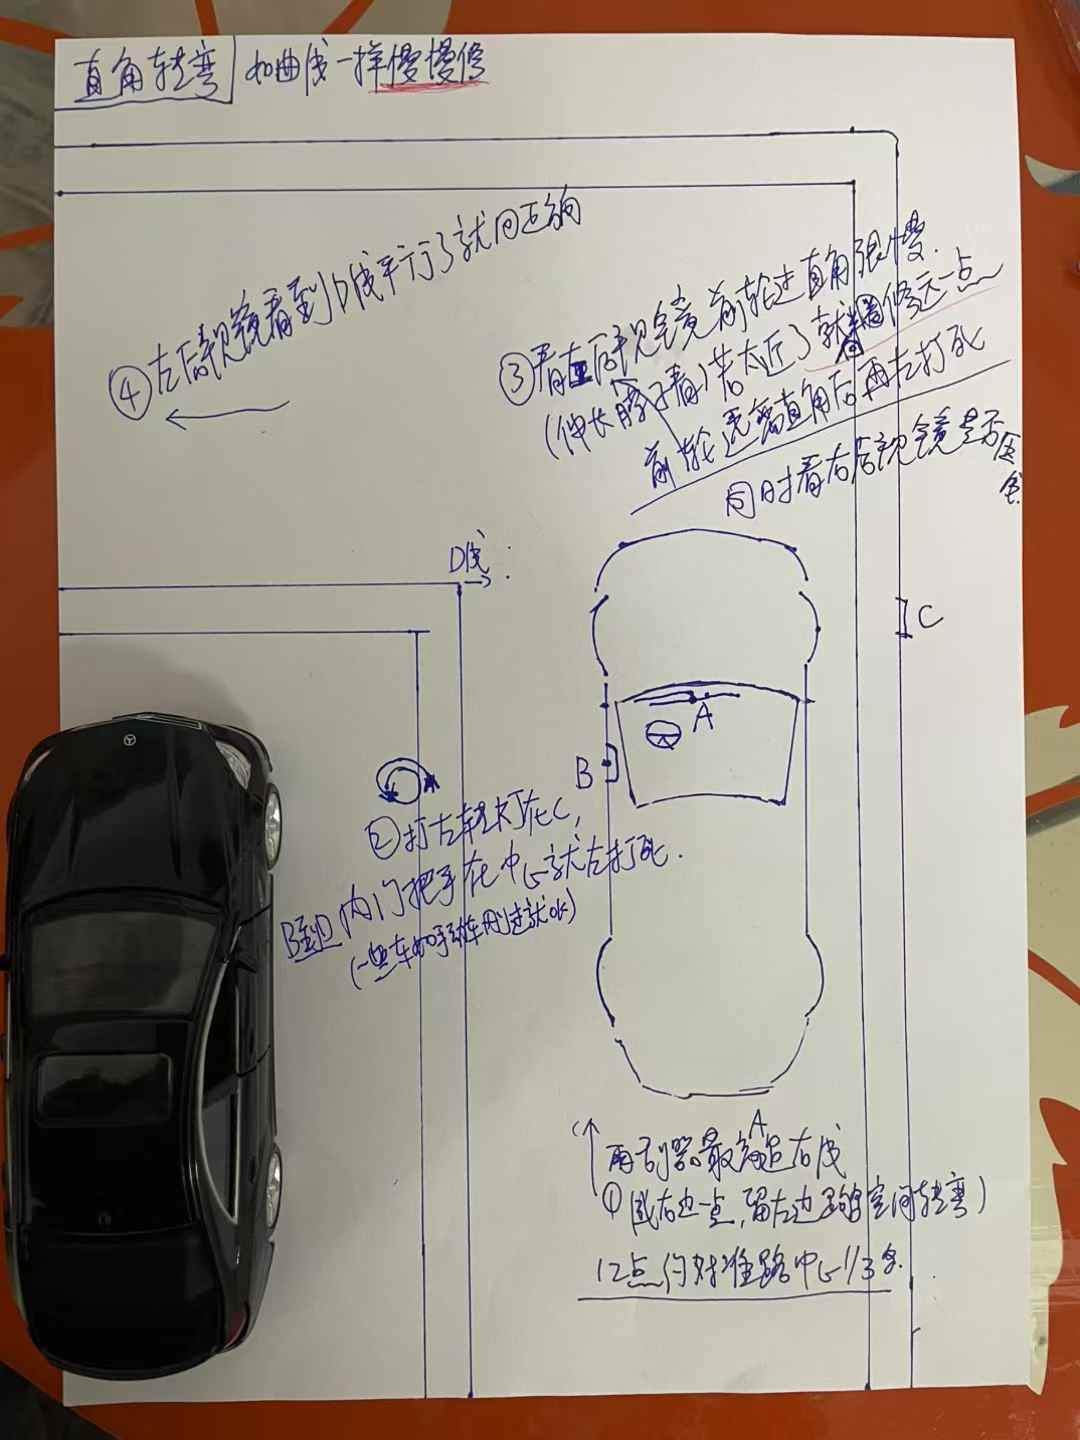 直角转弯 如曲线一样慢慢修
④左后视镜看到D线平行了就回正方向
③看左后视镜前轮过直角很慢.
(伸长脖子看)若太近了就右修远一点
前轮远离直角后再左打死
同时看右后视镜是否压线
D线:
C
A
B
②打左转灯在C,
B到D内门把手在中心就左打死.
(一些车如手动车刚过就ok)
A
雨刮器最高点右线
①(或右边一点,留左边够空间转弯)
12点钟对准路中心1/3多.